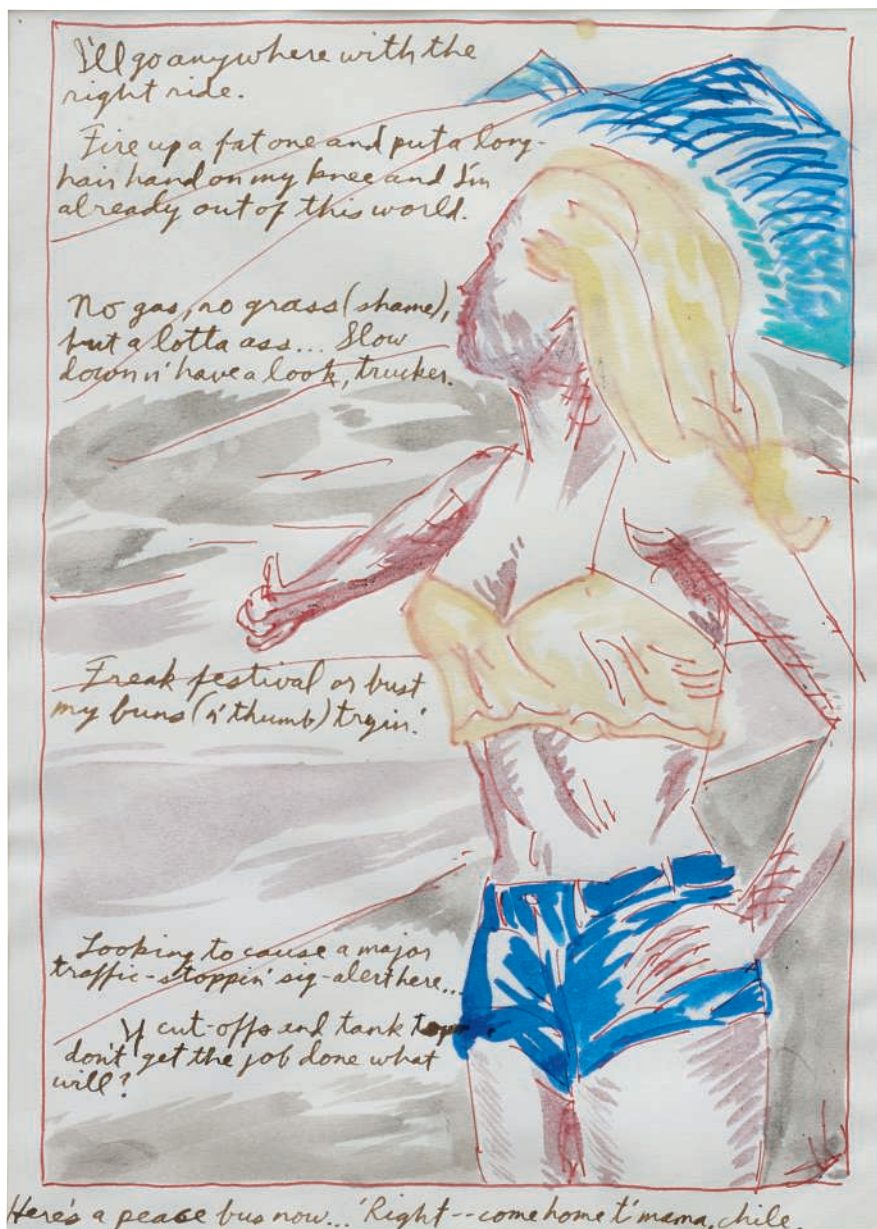 I'll go anywhere with the
right ride.
Fire up a fat one and put a long-
hair hand on my knee and I'm
already out of this world.
No gas, no grass (shame),
but a lotta ass... Slow
down n' have a look, trucker.
Freak festival or bust
my buns (n' thumb) tryin'.
Looking to cause a major
traffic-stoppin' sig-alert here...
If cut-offs and tank
don't get the job done what
will?
Here's a peace bus now... 'Right -- come home t' mama, chile